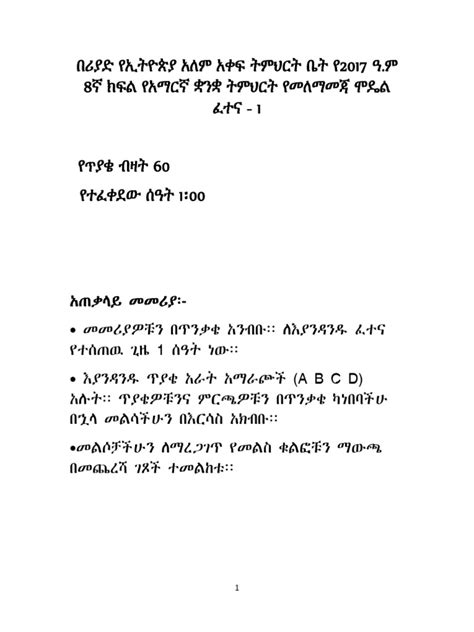 በሪያድ የኢትዮጵያ አለም አቀፍ ትምህርት ቤት የ2017 ዓ.ም
8ኛ ክፍል የአማርኛ ቋንቋ ትምህርት የመለማመጃ ሞዴል
ፈተና - 1
የጥያቄ ብዛት 60
የተፈቀደው ሰዓት 1፡00
አጠቃላይ መመሪያ፡-
• መመሪያዎቹን በጥንቃቄ አንብቡ፡፡ ለእያንዳንዱ ፈተና
የተሰጠዉ ጊዜ 1 ሰዓት ነው፡፡
• እያንዳንዱ ጥያቄ አራት አማራጮች (A B C D)
አሉት፡፡ ጥያቄዎቹንና ምርጫዎቹን በጥንቃቄ ካነበባችሁ
በኋላ መልሳችሁን በእርሳስ አክብቡ፡፡
•መልሶቻችሁን ለማረጋገጥ የመልስ ቁልፎቹን ማውጫ
በመጨረሻ ገጾች ተመልከቱ፡፡
1